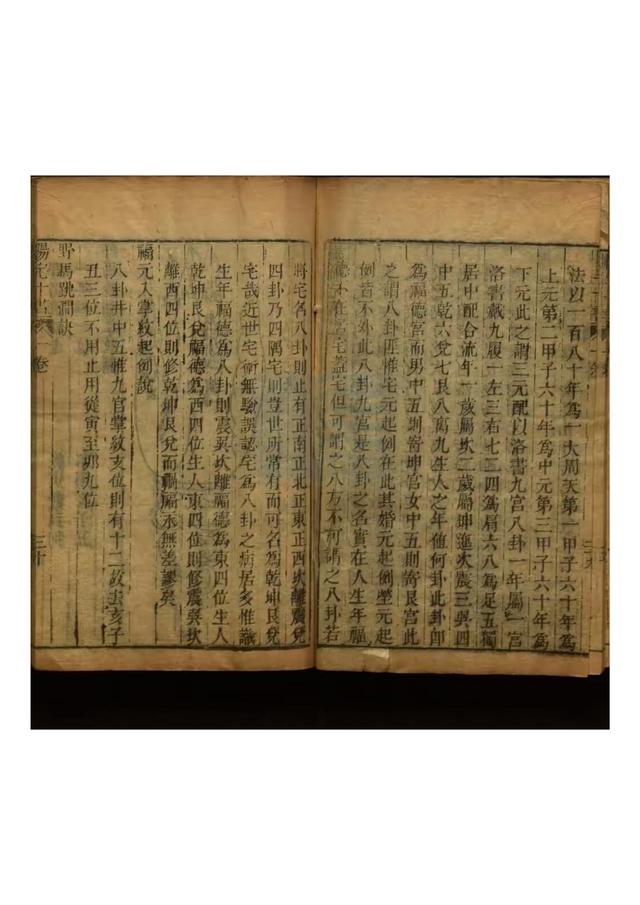 法以一百八十年為一大周天第一甲子六十年為
上元第二甲子六十年為中元第三甲子六十年為
下元此之謂三元配以洛書九宮八卦一年屬一宮
洛書戴九履一左三右七二四為肩六八為足五獨
居中配合流年一歲屬坎二歲屬坤迤次震三巽四
中五乾六兌七艮八離九生人之年値何卦此卦即
為福德宮而男中五則寄坤宮女中五則寄艮宮此
之謂八卦匪惟宅元起例在此其婚元起例塋元起
例皆不外此八卦九宮是八卦之名實在人生年福
德不在宮宅蓋宅但可謂之八方不可謂之八卦若
將宅名八卦則止有正南正北正東正西坎離震兌
四卦乃四隅宅則豈世所常有而可名為乾坤艮巽
宅哉近世宅術無驗誤認宅為八卦之病居多惟識
生年福德為八卦則震巽坎離福德為東四位生人
乾坤艮兌福德為西四位生人東四位則修震巽坎
離西四位則修乾坤艮兌而禍福永無差謬矣
福元入掌紋起例說
八卦幷中五惟九宮掌紋支位則有十二故去亥子
丑三位不用止用從寅至戌九位
野馬跳澗訣
陽宅十書 卷一 三十